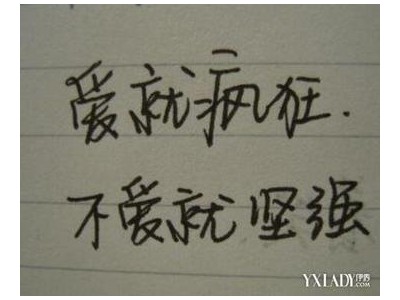 爱就疯狂.
不爱就坚强
YXLADY伊秀
.COM